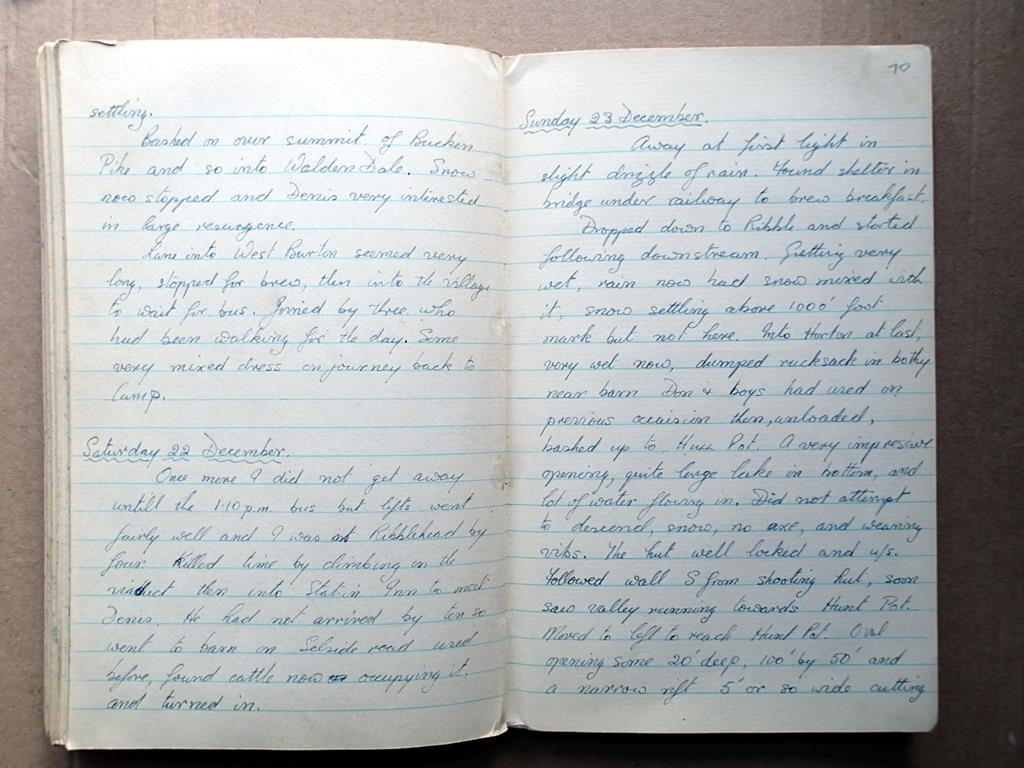 settling.
Bashed on over summit of Bucken
Pike and so into Walden Dale. Snow
now stopped and Denis very interested
in large resurgence.
Lane into West Burton seemed very
long, stopped for brew, then into the village
to wait for bus. Joined by three who
had been walking for the day. Some
very mixed dress on journey back to
Camp.
Saturday 22 December.
Once more I did not get away
untill the 1.10 p.m. bus but lifts went
fairly well and I was at Ribblehead by
four. Killed time by climbing on the
viaduct then into Station Inn to meet
Denis. He had not arrived by ten so
went to barn on Selside road used
before, found cattle now occupying it.
and turned in.
70
Sunday 23 December.
Away at first light in
slight drizzle of rain. Found shelter in
bridge under railway to brew breakfast.
Dropped down to Ribble and started
following downstream. Getting very
wet, rain now had snow mixed with
it, snow settling above 1000' foot
mark but not here. Into Horton at last,
very wet now, dumped rucksack in bothy
near barn Don & boys had used on
previous occaision then, unloaded,
bashed up to Hull Pot. A very impressive
opening, quite large lake in bottom, and
lot of water flowing in. Did not attempt
to descend, snow, no axe, and wearing
vibs. The hut well locked and u/s.
Followed wall S from shooting hut, soon
saw valley running towards Hunt Pot.
Moved to left to reach Hunt Pot. Oval
opening some 20' deep, 100' by 50' and
a narrow rift 5' or so wide cutting